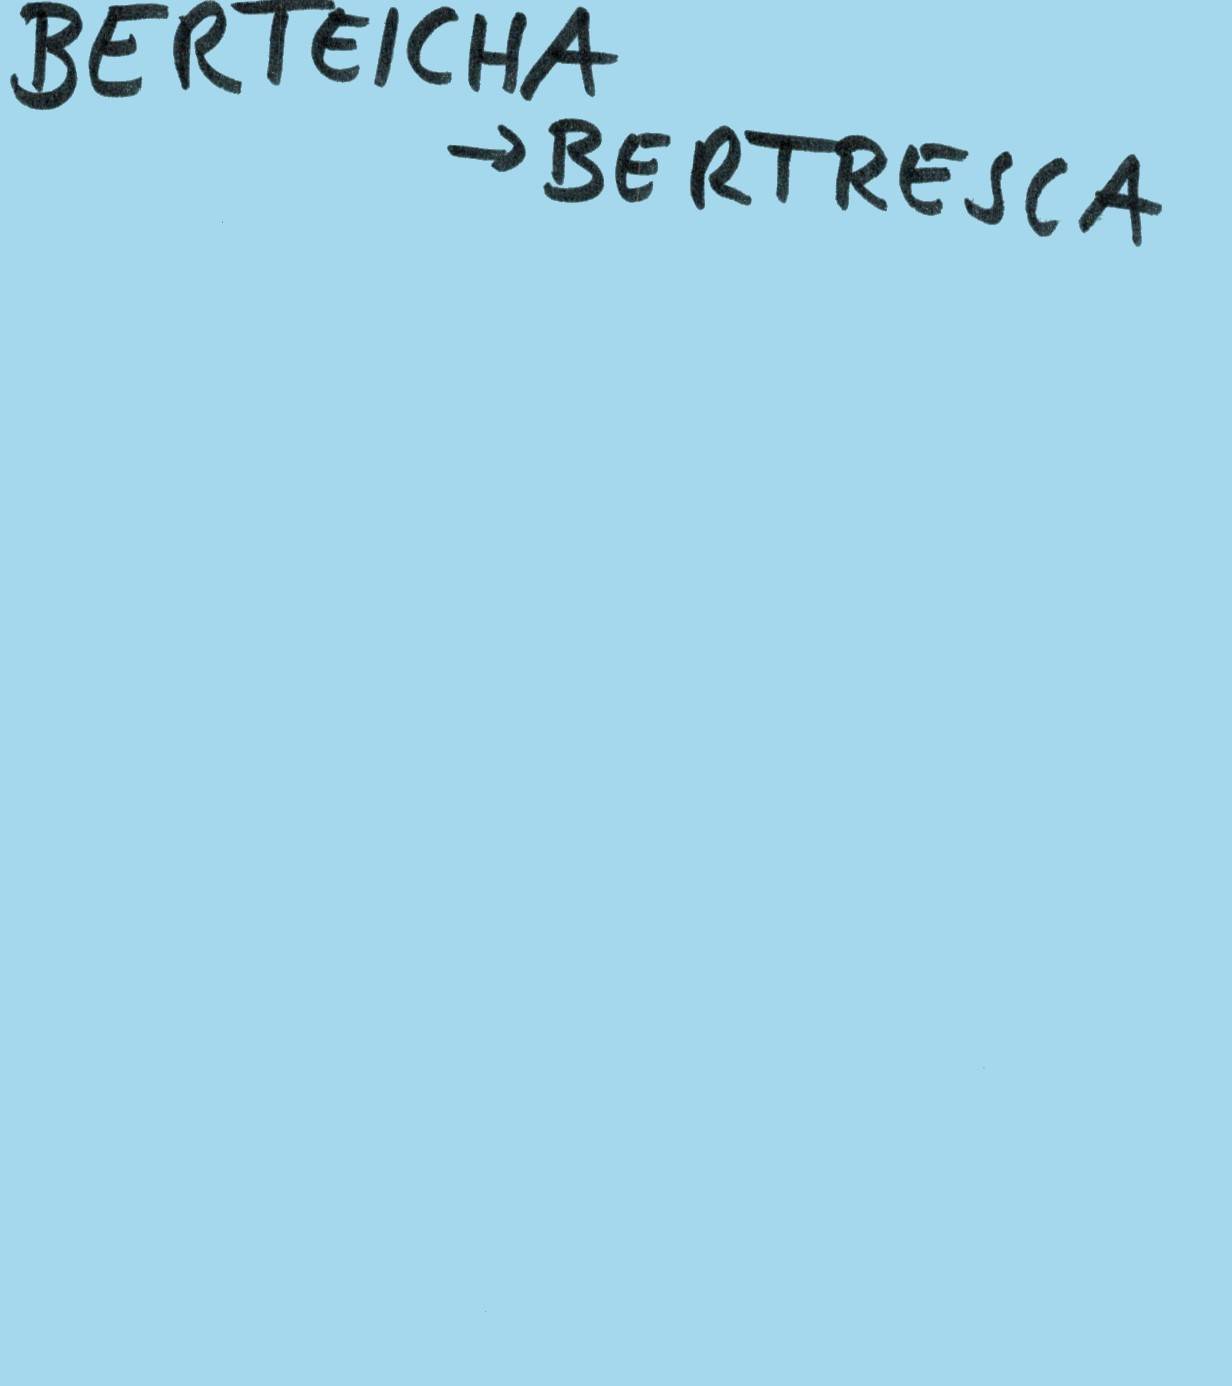 BERTEICHA
→ BERTRESCA